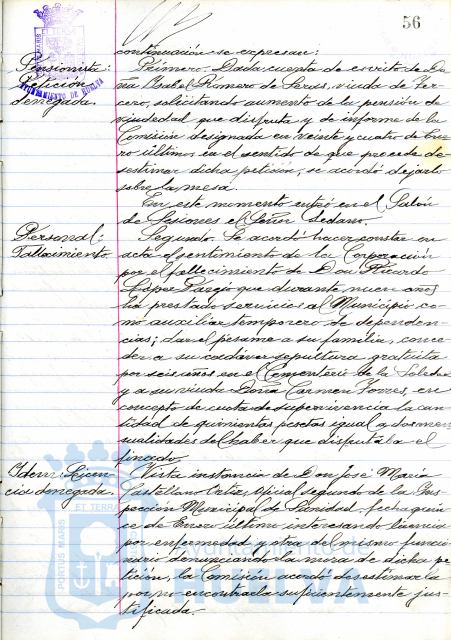 56
continuación se expresan:
Pensionista:
Petición
denegada.
AYUNTAMIENTO DE HUELVA
Primero. Dada cuenta de escrito de Do-
ña Isabel Romero de viuda de
solicitando aumento de la pensión de
viudedad que disfruta y de informe de la
Comisión designada en veinte y cuatro de Ene-
ro último, en el sentido de que procede de-
sestimar dicha petición, se acordó dejarlo
sobre la mesa.
En este momento entró en el Salón
de Sesiones el Señor Sedano.
Personal:
Fallecimiento.
Segundo. Se acordó hacer constar en
acta el sentimiento de la Corporación
por el fallecimiento de Don Ricardo
López que durante nueve años
ha prestado servicios al Municipio co-
mo auxiliar temporero de dependen-
cias; dar el pésame a su familia, conce-
der a su cadáver sepultura gratuita
por seis años en el Cementerio de la Soledad
y a su viuda Doña Carmen Torres, en
concepto de cuota de supervivencia la can-
tidad de quinientas pesetas igual a dos men-
sualidades del haber que disfrutaba el
finado.
Idem: Licen-
cia denegada.
Vista instancia de Don José María
Castellano Ortiz, Oficial segundo de la Ins-
pección Municipal de Sanidad, fecha quin-
ce de Enero último interesando licencia
por enfermedad y otra del mismo funcio-
nario denunciando la mora de dicha pe-
tición, la Comisión acordó desestimarla
por no encontrarla suficientemente jus-
tificada.
PORTUS MARIS
ET TERRAE
Ayuntamiento de
HUELVA